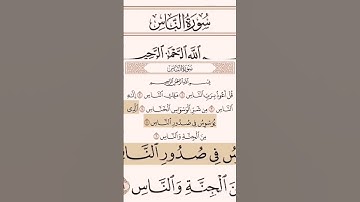 سُورَةُ النَّاسِ
اللَّهِ الرَّحْمَٰنِ الرَّحِيمِ
سُورَةُ النَّاسِ
بِسْمِ اللَّهِ الرَّحْمَٰنِ الرَّحِيمِ
قُلْ أَعُوذُ بِرَبِّ النَّاسِ ۝١ مَلِكِ النَّاسِ ۝٢ إِلَٰهِ
النَّاسِ ۝٣ مِن شَرِّ الْوَسْوَاسِ الْخَنَّاسِ ۝٤ الَّذِي
يُوَسْوِسُ فِي صُدُورِ النَّاسِ ۝٥
مِنَ الْجِنَّةِ وَالنَّاسِ ۝٦
سُ فِي صُدُورِ النَّا
نَ الْجِنَّةِ وَالنَّاسِ